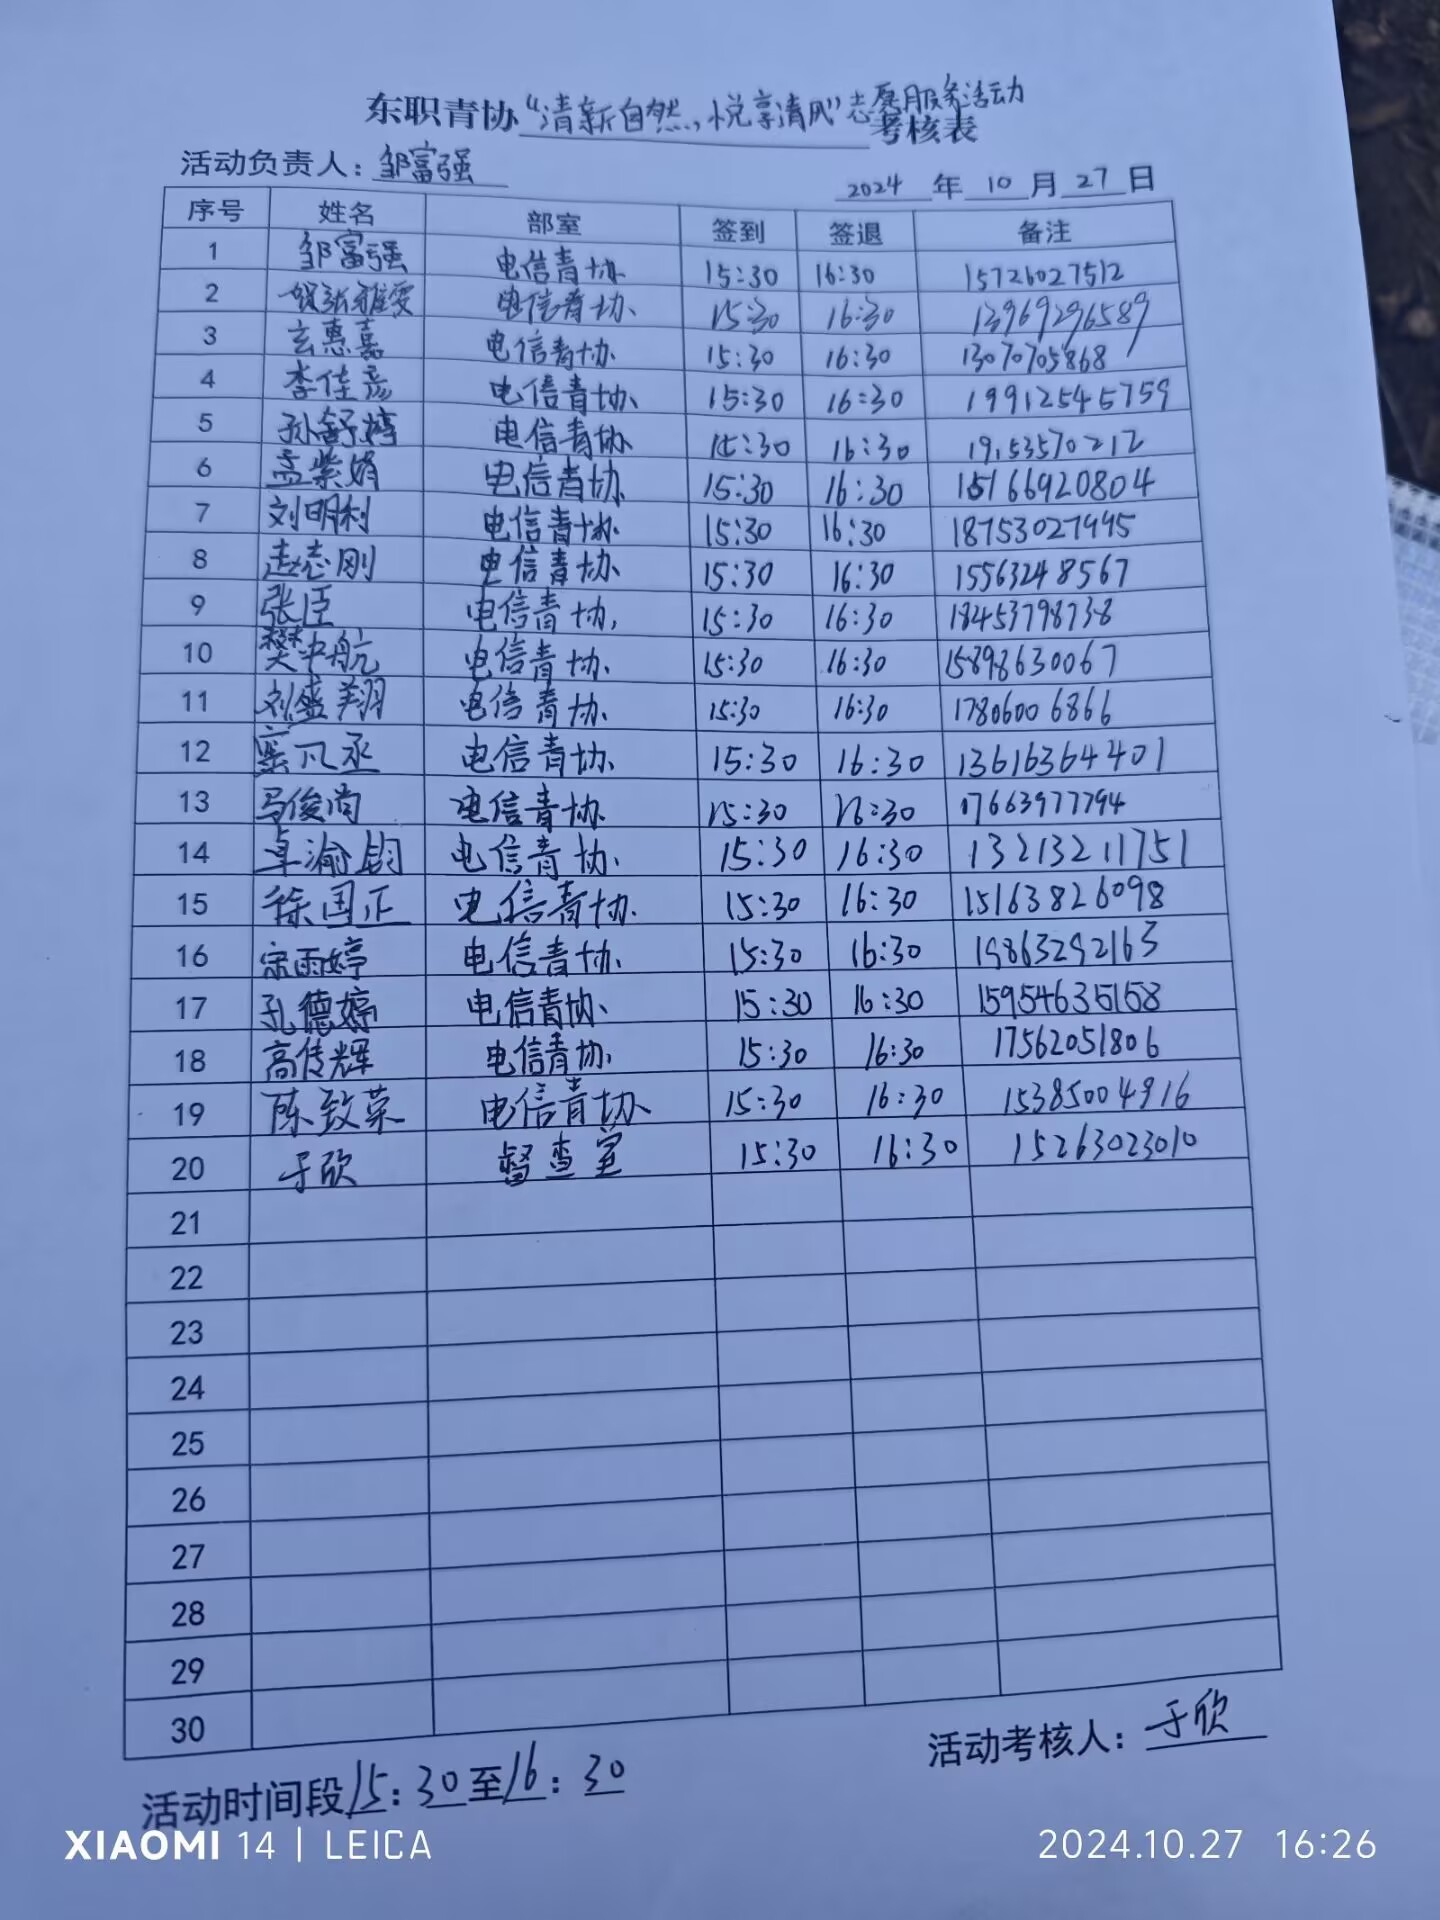 东职青协“清新自然，悦享清风”志愿服务活动考核表
活动负责人：邹富强 2024年10月27日
序号 姓名 部室 签到 签退 备注
1 邹富强 电信青协 15:30 16:30 15726027512
2 电信青协 15:30 16:30 13969296589
3 玄惠嘉 电信青协 15:30 16:30 13070705868
4 李佳彦 电信青协 15:30 16:30 19912545759
5 孙舒婷 电信青协 15:30 16:30 19153570212
6 孟紫娟 电信青协 15:30 16:30 15166920804
7 刘明利 电信青协 15:30 16:30 18753027995
8 赵志刚 电信青协 15:30 16:30 15563248567
9 张臣 电信青协 15:30 16:30 18453798738
10 樊中航 电信青协 15:30 16:30 15898630067
11 刘盛翔 电信青协 15:30 16:30 17806006866
12 电信青协 15:30 16:30 13616364401
13 马俊尚 电信青协 15:30 16:30 17663977794
14 卓渝钧 电信青协 15:30 16:30 13213211751
15 徐国正 电信青协 15:30 16:30 15163826098
16 宋雨婷 电信青协 15:30 16:30 19863292163
17 孔德婷 电信青协 15:30 16:30 15954635158
18 高传辉 电信青协 15:30 16:30 17562051806
19 陈致荣 电信青协 15:30 16:30 15385004916
20 于欣 督查室 15:30 16:30 15263023010
21
22
23
24
25
26
27
28
29
30
活动考核人：于欣
活动时间段15：30至16：30
XIAOMI 14 | LEICA 2024.10.27 16:26